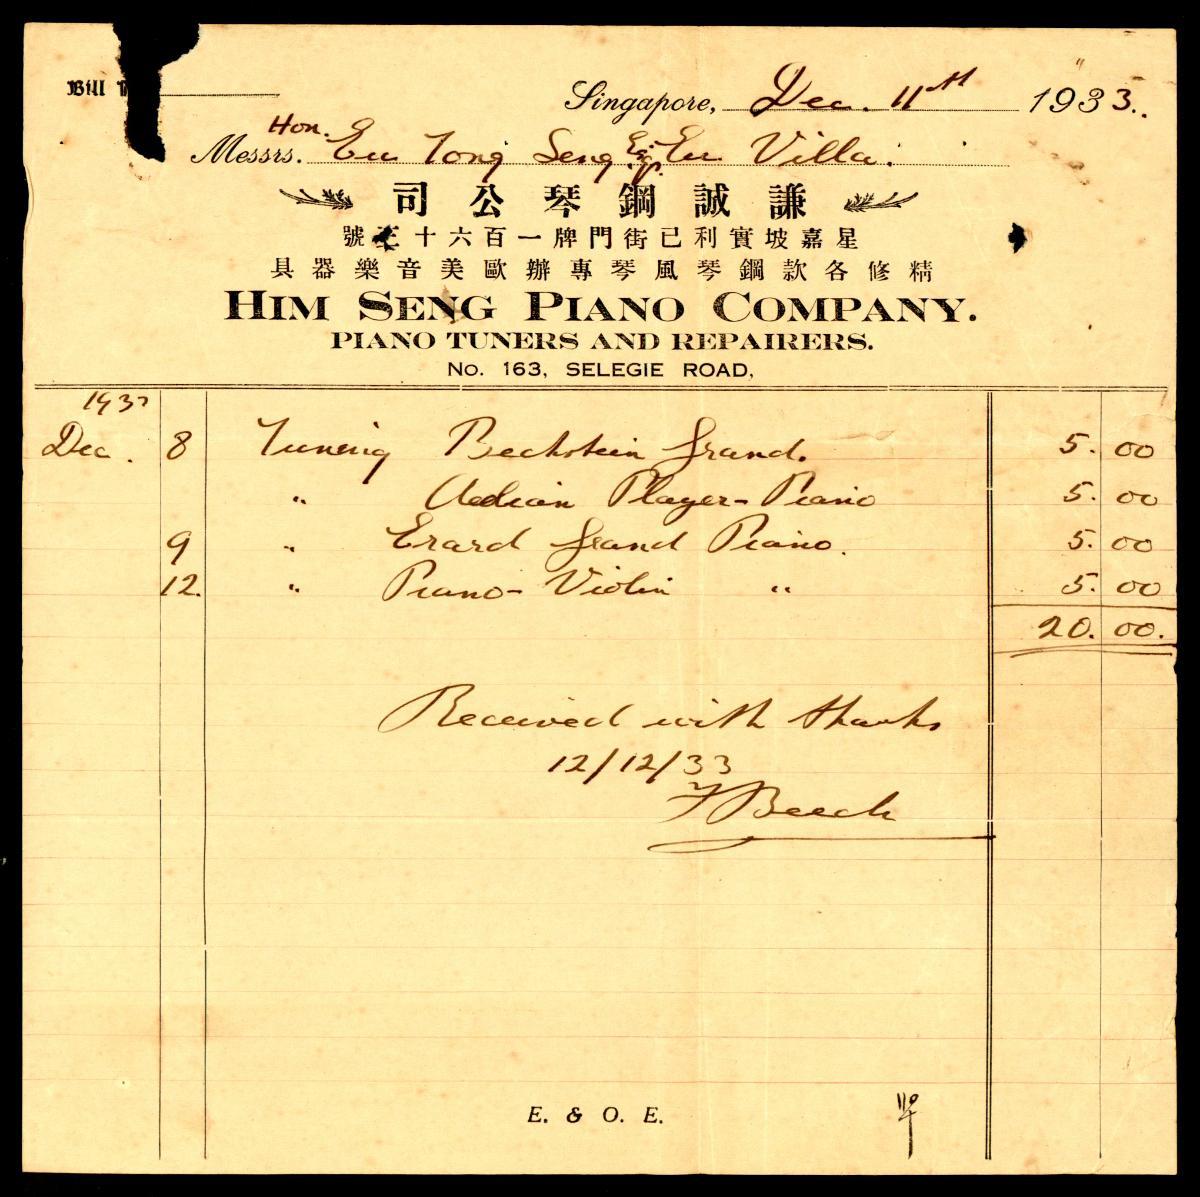 Bill
Singapore, Dec. 11th 1933.
Hon.
Messrs. Eu Tong Seng Esq. Eu Villa.
司公琴鋼誠謙
號三十六百一牌門街已利實坡嘉星
具器樂音美歐辦專琴風琴鋼款各修精
HIM SENG PIANO COMPANY.
PIANO TUNERS AND REPAIRERS.
No. 163, SELEGIE ROAD,
1933
Dec. 8 Tuning Bechstein Grand. 5. 00
" Aeolian Player-Piano 5. 00
9 " Erard Grand Piano. 5. 00
12. " Piano-Violin " 5. 00
20. 00.
Received with thanks
12/12/33
F Beech
E. & O. E.